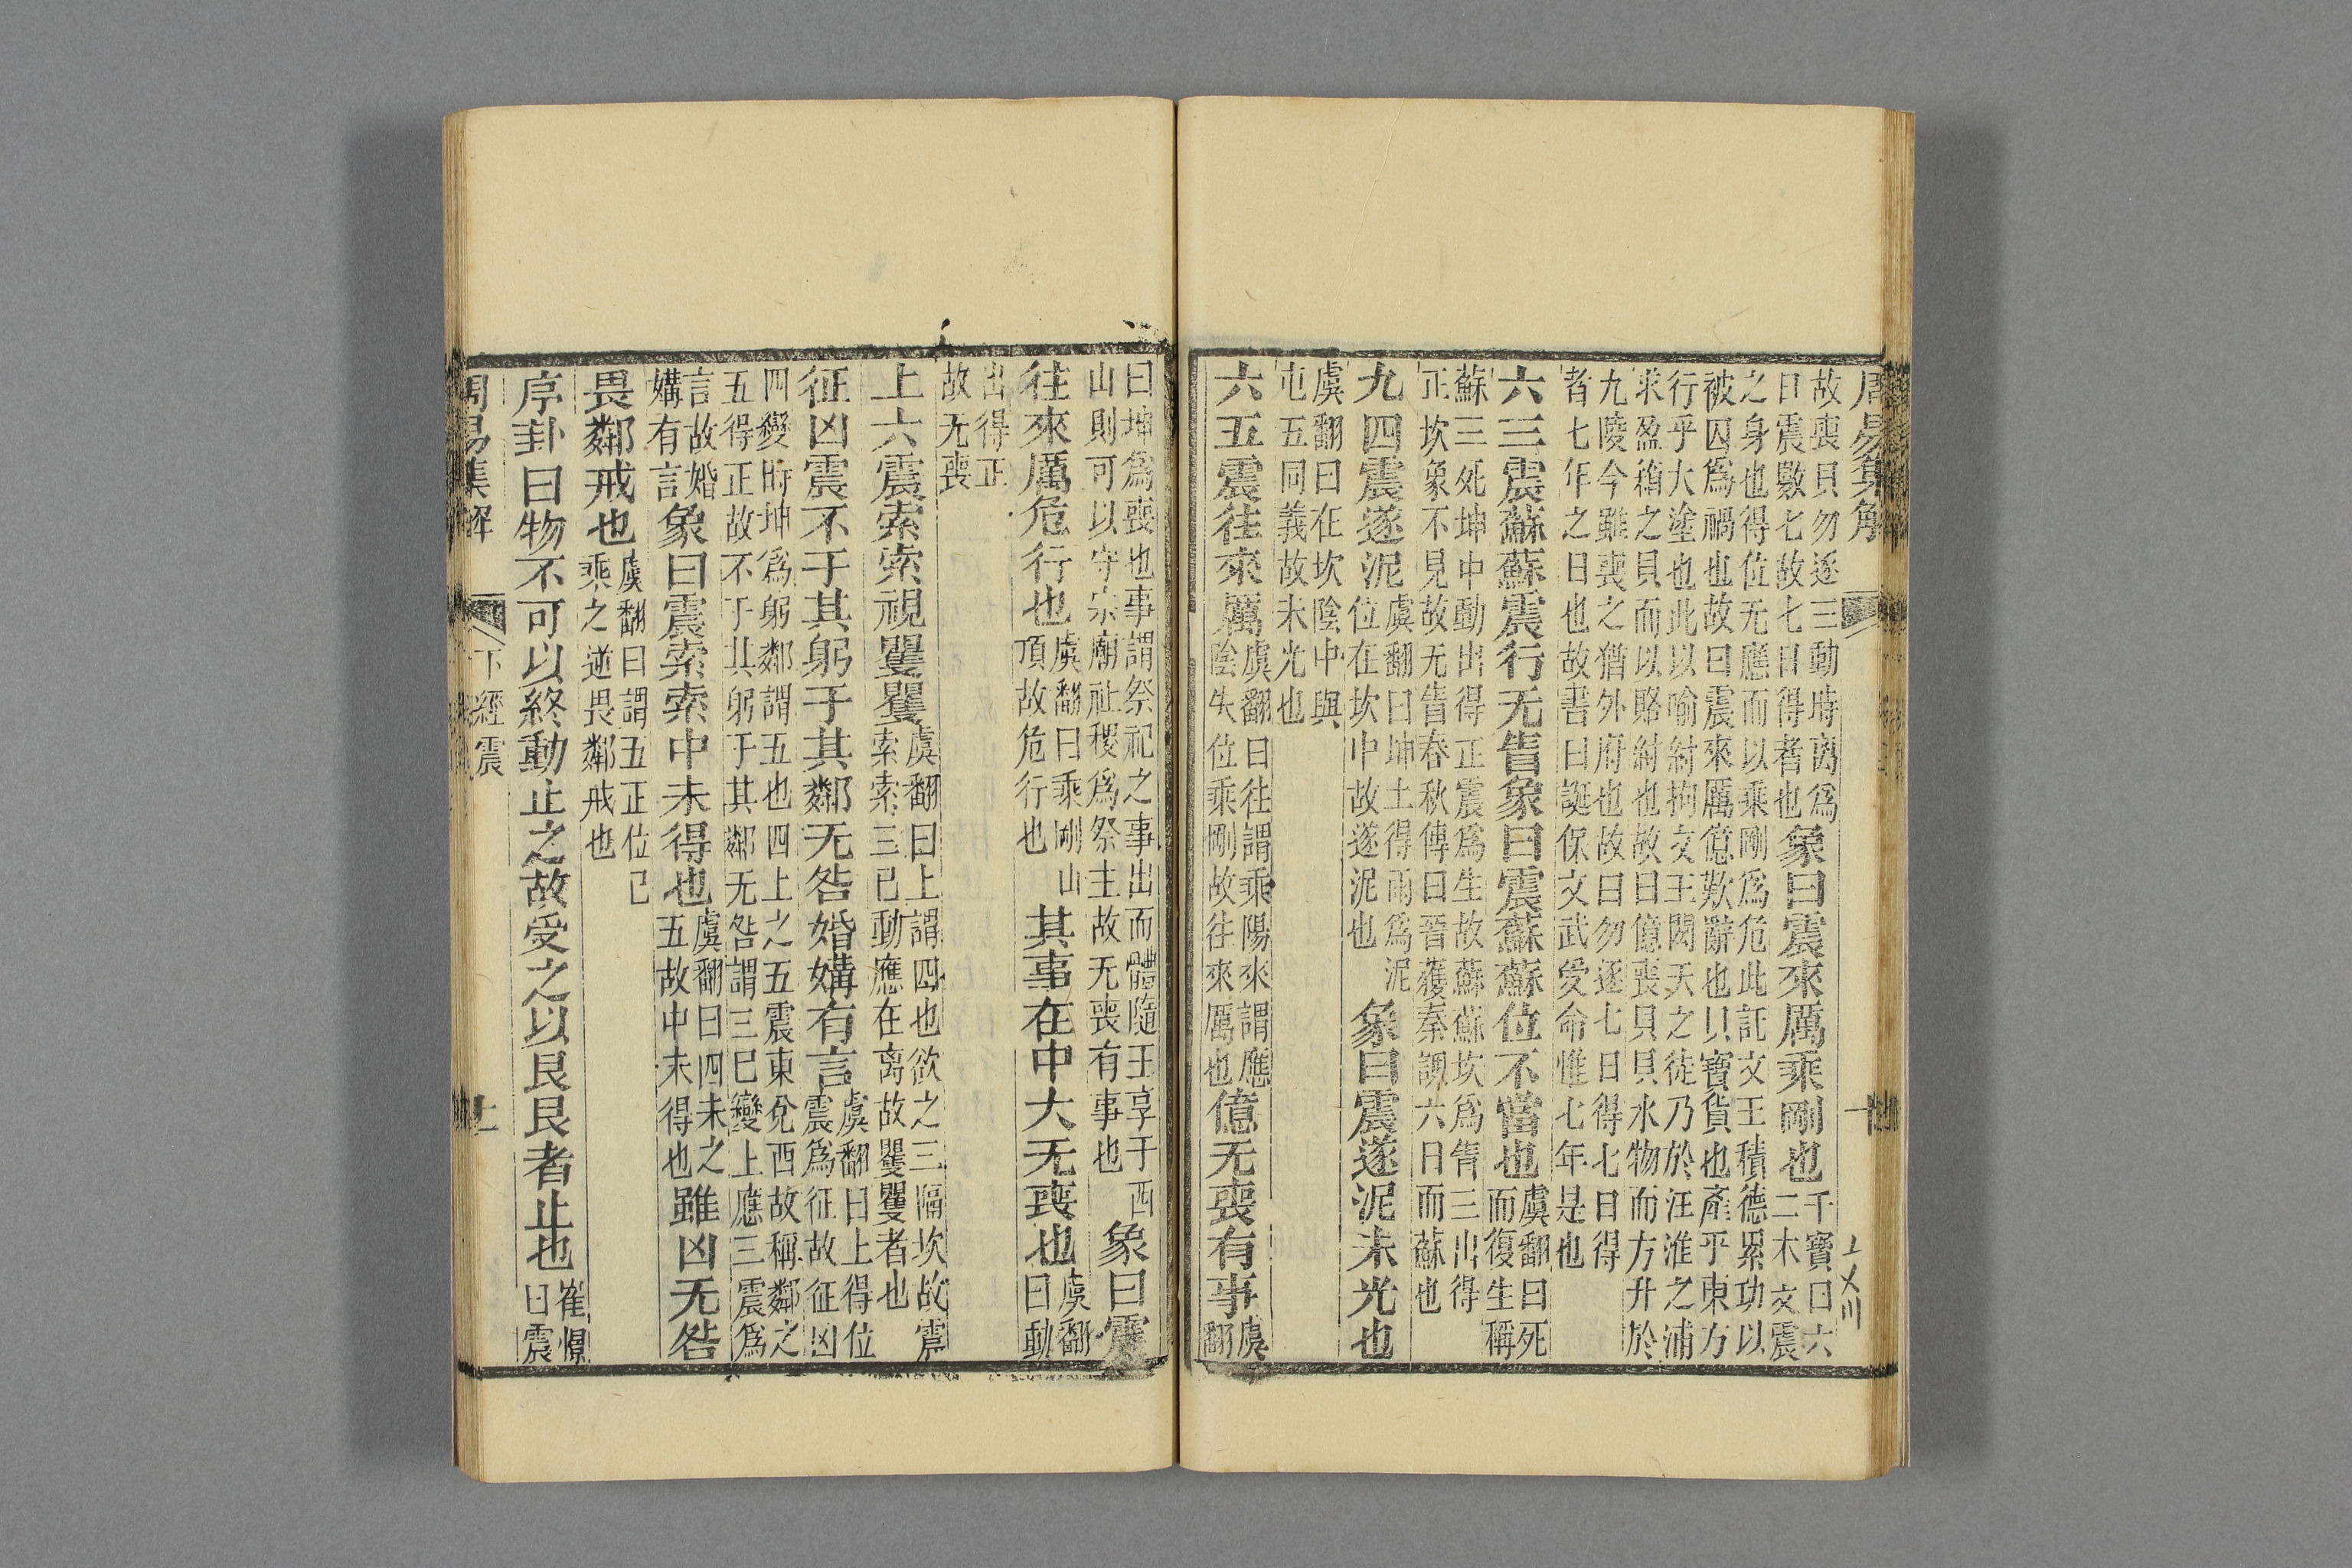 周易集解
故喪貝勿逐三動時离爲
日震數七故七日得者也
象曰震來厲乘剛也
干寶曰六
二木爻震
之身也得位无應而以乘剛爲危此託文王積德累功以
被囚爲禍也故曰震來厲億歎辭也貝寶貨也產乎東方
行乎大塗也此以喻紂拘文王閎夭之徒乃於江淮之浦
求盈箱之貝而以賂紂也故曰億喪貝貝水物而方升於
九陵今雖喪之猶外府也故曰勿逐七日得七日得
者七年之日也故書曰誕保文武受命惟七年是也
六三震蘇蘇震行无眚象曰震蘇蘇位不當也
虞翻曰死
而復生稱
蘇三死坤中動出得正震爲生故蘇蘇坎爲眚三出得
正坎象不見故无眚春秋傳曰晉獲秦諜六日而蘇也
九四震遂泥
虞翻曰坤土得雨爲泥
位在坎中故遂泥也
象曰震遂泥未光也
虞翻曰在坎陰中與
屯五同義故未光也
六五震往來厲
虞翻曰往謂乘陽來謂應
陰失位乘剛故往來厲也
億无喪有事
虞
翻
曰坤爲喪也事謂祭祀之事出而體隨王享于西
山則可以守宗廟社稷爲祭主故无喪有事也
象曰震
往來厲危行也
虞翻曰乘剛山
頂故危行也
其事在中大无喪也
虞翻
曰動
出得正
故无喪
上六震索索視矍矍
虞翻曰上謂四也欲之三隔坎故震
索索三已動應在离故矍矍者也
征凶震不于其躬于其鄰无咎婚媾有言
虞翻曰上得位
震爲征故征凶
四變時坤爲躬鄰謂五也四上之五震東兌西故稱鄰之
五得正故不于其躬于其鄰无咎謂三已變上應三震爲
言故婚
媾有言
象曰震索索中未得也
虞翻曰四未之
五故中未得也
雖凶无咎
畏鄰戒也
虞翻曰謂五正位己
乘之逆畏鄰戒也
序卦曰物不可以終動止之故受之以艮艮者止也
崔憬
曰震
周易集解
下經震